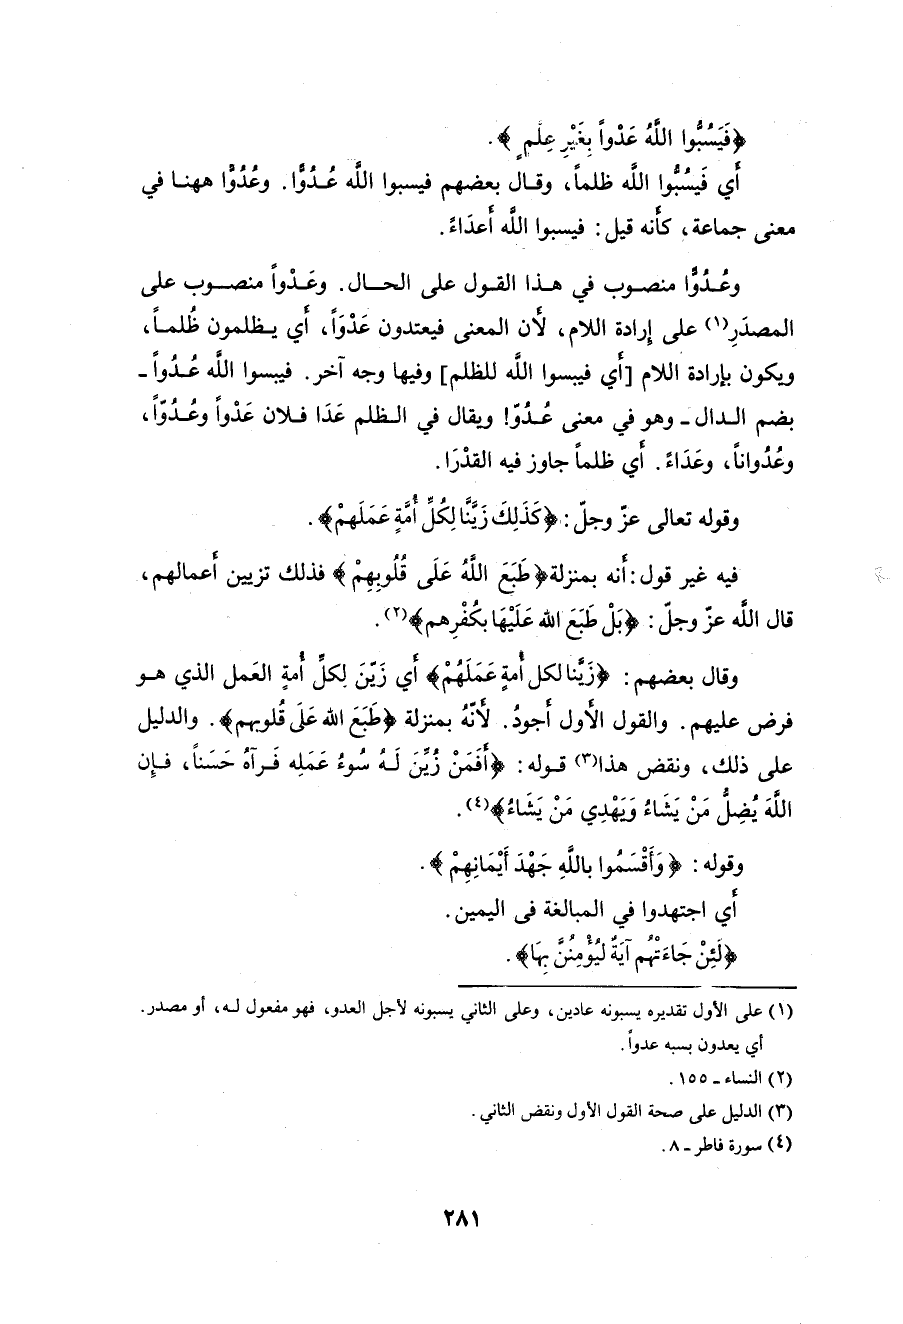 ﴿فَيَسُبُّوا اللَّهُ عَدْواً بِغَيْرِ عِلْمٍ﴾.
أَي فَيَسُبُّوا اللَّه ظلماً، وقال بعضهم فيسبوا اللَّه عُدُوًّا. وعُدُوًّا ههنا في
معنى جماعة، كأنه قيل: فيسبوا اللَّه أعدَاءً.
وعُدُوًّا منصوب في هذا القول على الحال. وعَدْواً منصوب على
المصدَرِ(١) على إرادة اللام، لأن المعنى فيعتدون عَدْوَاً، أي يظلمون ظُلماً،
ويكون بإرادة اللام [أي فيبسوا اللَّه للظلم] وفيها وجه آخر. فيبسوا اللَّه عُدُواً ـ
بضم الدال ـ وهو في معنى عُدُوّ! ويقال في الظلم عَدَا فلان عَدْواً وعُدُوّاً،
وعُدُواناً، وعَدَاءً. أي ظلماً جاوز فيه القدْرَا.
وقوله تعالى عزّ وجلّ: ﴿كَذَلِكَ زَيَّنَّا لِكُلِّ أُمَّةٍ عَمَلَهمْ﴾.
فيه غير قول: أنه بمنزلة ﴿طَبَعَ اللَّهُ عَلَى قُلُوبِهِمْ﴾ فذلك تزيين أعمالهم،
قال اللَّه عزّ وجلّ: ﴿بَلْ طَبَعَ الله عَلَيْهَا بكُفْرِهم﴾(٢).
وقال بعضهم: ﴿زَيَّنا لكل أمةٍ عَمَلَهُمْ﴾ أي زَيّنَ لِكلِّ أُمةٍ العَمل الذي هو
فرض عليهم. والقول الأول أجودُ. لأنّهُ بمنزلة ﴿طَبَعَ الله عَلَى قُلوبهم﴾. والدليل
على ذلك، ونقض هذا(٣) قوله: ﴿أفَمَنْ زُيِّنَ لَهُ سُوءُ عَمَلِه فَرآهُ حَسَناً، فإن
اللَّهَ يُضِلُّ مَنْ يَشَاءُ وَيَهْدِي مَنْ يَشَاءُ﴾(٤).
وقوله: ﴿وَأَقْسَمُوا باللَّهِ جَهْدَ أَيْمَانِهِمْ﴾.
أي اجتهدوا في المبالغة فى اليمين.
﴿لَئِنْ جَاءَتْهُم آيَةٌ لَيُؤْمِنُنَّ بِهَا﴾.
(١) على الأول تقديره يسبونه عادين، وعلى الثاني يسبونه لأجل العدو، فهو مفعول له، أو مصدر.
أي يعدون بسبه عدواً.
(٢) النساء ـ ١٥٥.
(٣) الدليل على صحة القول الأول ونقض الثاني.
(٤) سورة فاطر ـ ٨.
٢٨١